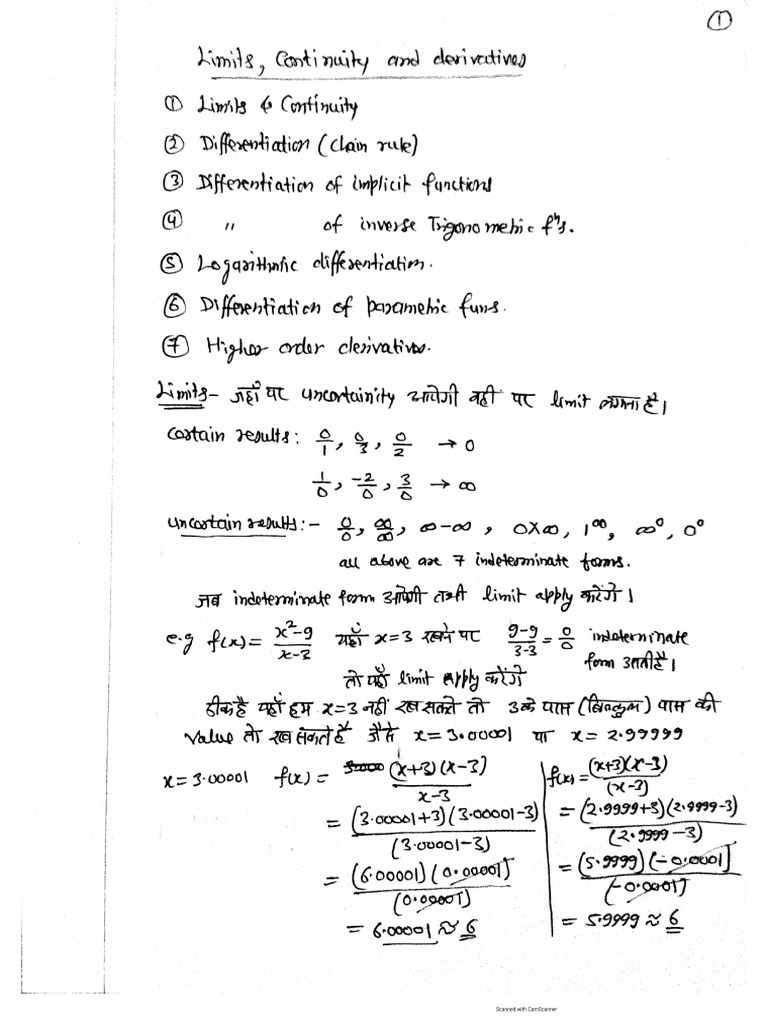 ①
Limits, Continuity and derivatives
① Limits & Continuity
② Differentiation (Chain rule)
③ Differentiation of implicit functions
④ 〃 of inverse Trigonometric fⁿs.
⑤ Logarithmic differentiation.
⑥ Differentiation of parametric funs.
⑦ Higher order derivatives.
Limits - जहाँ पर uncertainity आयेगी वहीं पर limit लगता है।
Certain results: 0/1, 0/3, 0/2 → 0
1/0, -2/0, 3/0 → ∞
uncertain results:- 0/0, ∞/∞, ∞-∞, 0×∞, 1^∞, ∞⁰, 0⁰
all above are 7 indeterminate forms.
जब indeterminate form आयेगी तभी limit apply करेंगे।
e.g f(x) = (x²-9)/(x-3) यहाँ x=3 रखने पर (9-9)/(3-3) = 0/0 indeterminate
form आती है।
तो यहाँ limit apply करेंगे
ठीक है यहाँ हम x=3 नहीं रख सकते तो 3 के पास (बिल्कुल) पास की
value तो रख सकते हैं जैसे x = 3.00001 या x = 2.99999
x = 3.00001 f(x) = (x+3)(x-3)/(x-3)
= (3.00001+3)(3.00001-3)/(3.00001-3)
= (6.00001)(0.00001)/(0.00001)
= 6.00001 ≈ 6
f(x) = (x+3)(x-3)/(x-3)
= (2.9999+3)(2.9999-3)/(2.9999-3)
= (5.9999)(-0.0001)/(-0.0001)
= 5.9999 ≈ 6
Scanned with CamScanner